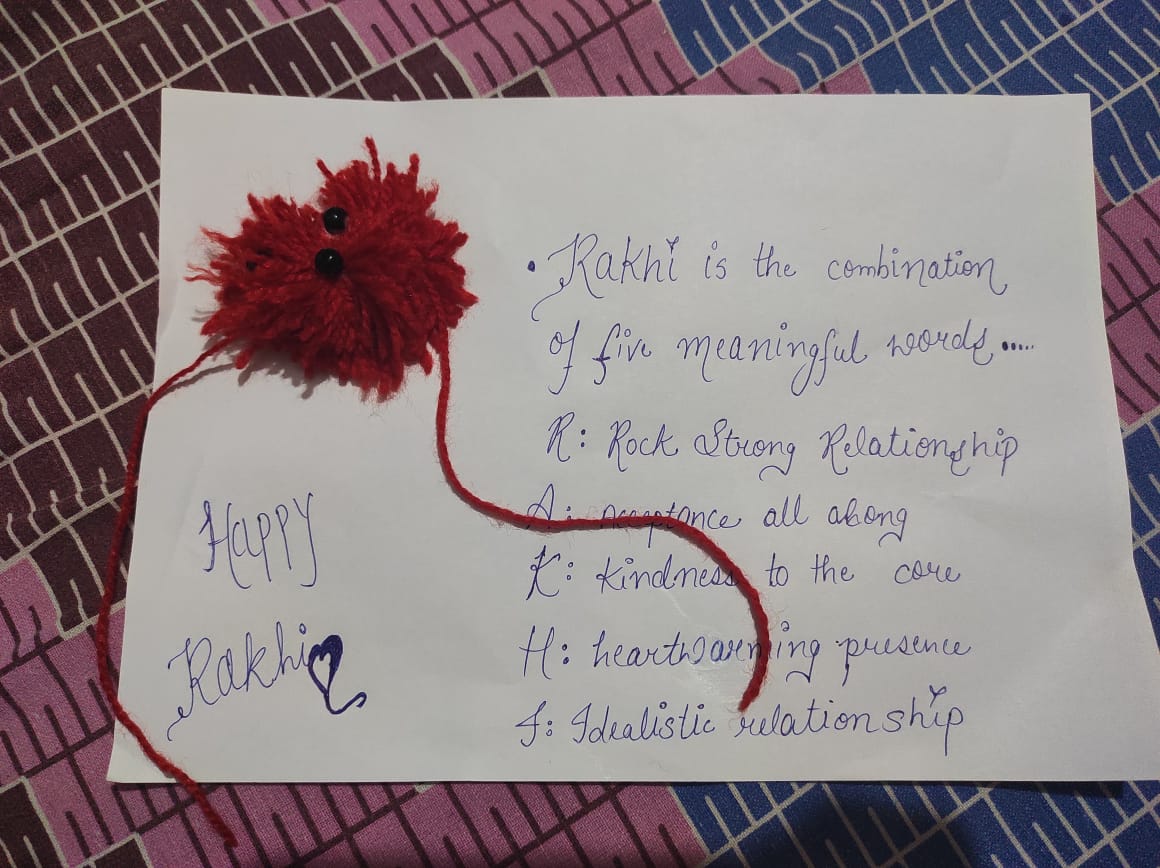 Happy
Rakhi
• Rakhi is the combination
of five meaningful words.....
R: Rock Strong Relationship
A: acceptance all along
K: kindness to the core
H: heartwarming presence
I: Idealistic relationship